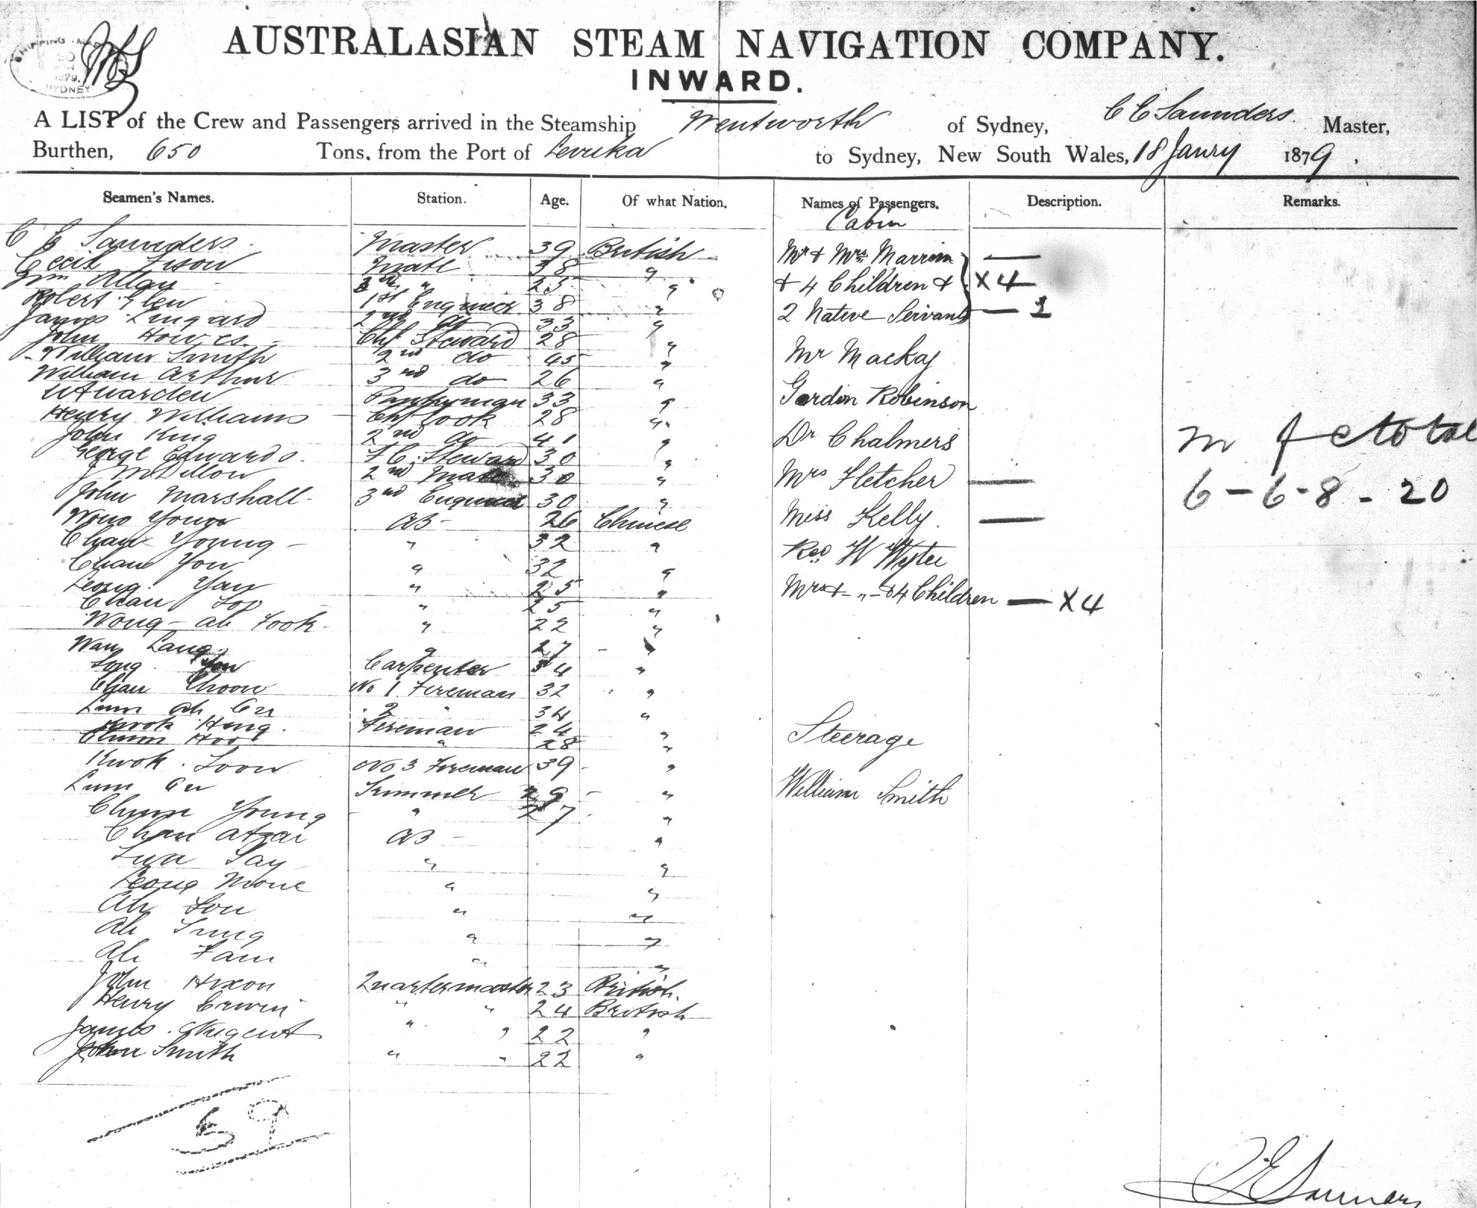 SHIPPING
1879.
SYDNEY
AUSTRALASIAN STEAM NAVIGATION COMPANY.
INWARD.
A LIST of the Crew and Passengers arrived in the Steamship Wentworth of Sydney, C E Saunders. Master,
Burthen, 650 Tons, from the Port of Levuka to Sydney, New South Wales, 18 Janry 1879.
Seamen's Names. Station. Age. Of what Nation. Names of Passengers. Description. Remarks.
Cabin
C E Saunders. Master 39 British Mr & Mrs —
Cecil Mate 38 " & 4 Children & X4
Wm 25 "
Robert Glen 1st Engineer 38 " 2 Native Servants — 1
James Lingard 2nd do 33 "
John Howes Chf Steward 28 " Mr Mackay
William Smith 2nd do 45 "
William Arthur 3rd do 26 "
Pantryman 33 " Gordon Robinson
Henry Williams Chf Cook 28 "
John King 2nd do 41 " Dr Chalmers m f c total
George Edwards. F. C. Steward 30 "
J McDillon 2nd Mate 30 " Mrs Fletcher —
John Marshall. 3rd Engineer 30 " 6 - 6 - 8 - 20
Wong Young AB - 26 Chinese Miss Kelly. —
Chan Young - " 32 "
Chan You " 32 " Rev W
Leong Yan " 25 "
Chan " 25 " Mrs & - " - & 4 Children — X4
Wong - ah Fook. " 22 "
Wan Lang " 27 - "
Long Carpenter 34 "
Chan Choon No 1 Fireman 32 "
Lum Ah 2 " 34 "
Kwok Hing. Fireman 24 " Steerage
" 28 "
Kwok Loon No 3 Fireman 39 "
Lum Trimmer 29 - " William Smith
Chun Young " 27 "
Chan AB - "
Tay " "
Leong " "
Ah Lou " "
Ah Tung " "
Ah Fam " "
John Hixon Quartermaster 23 British.
Henry Erwin " " 24 British
James " " 22 "
John Smith " " 22 "
59
C E Saunders